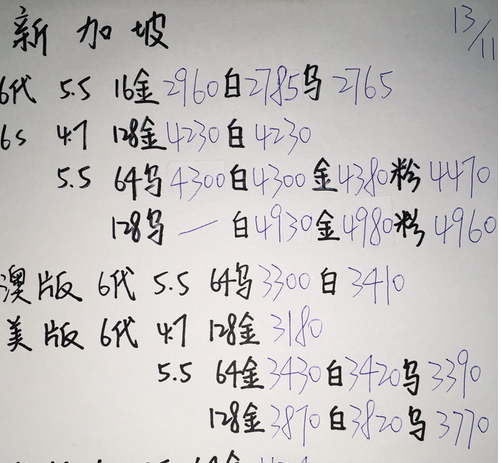 新加坡 13/11
6代 5.5 16金2960白2785乌2765
6s 4.7 128金4230白4230
5.5 64乌4300白4300金4380粉4470
128乌 — 白4930金4980粉4960
澳版 6代 5.5 64乌3300白3410
美版 6代 4.7 128金3180
5.5 64金3430白3420乌3390
128金3870白3820乌3770